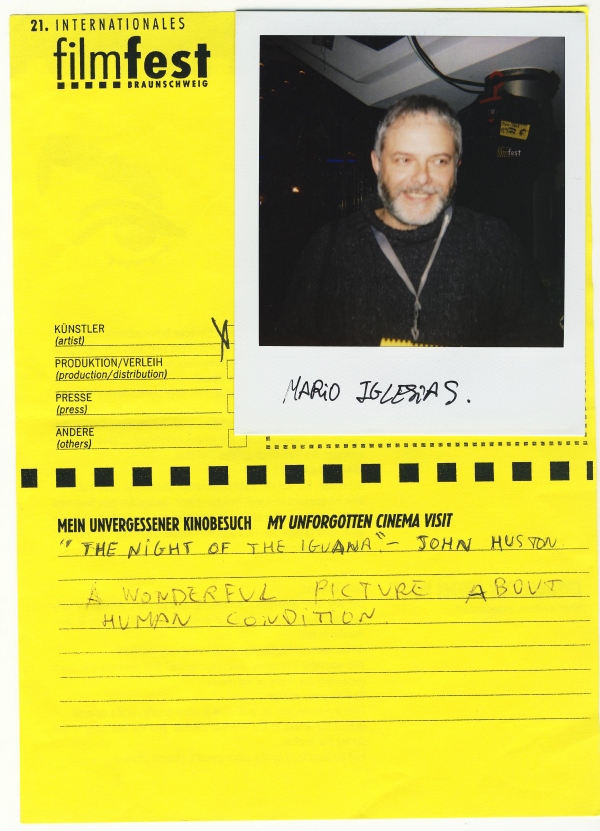 21. INTERNATIONALES
filmfest
BRAUNSCHWEIG
filmfest
MARIO IGLESIAS.
KÜNSTLER
(artist)
PRODUKTION/VERLEIH
(production/distribution)
PRESSE
(press)
ANDERE
(others)
MEIN UNVERGESSENER KINOBESUCH MY UNFORGOTTEN CINEMA VISIT
"THE NIGHT OF THE IGUANA" - JOHN HUSTON.
A WONDERFUL PICTURE ABOUT
HUMAN CONDITION.